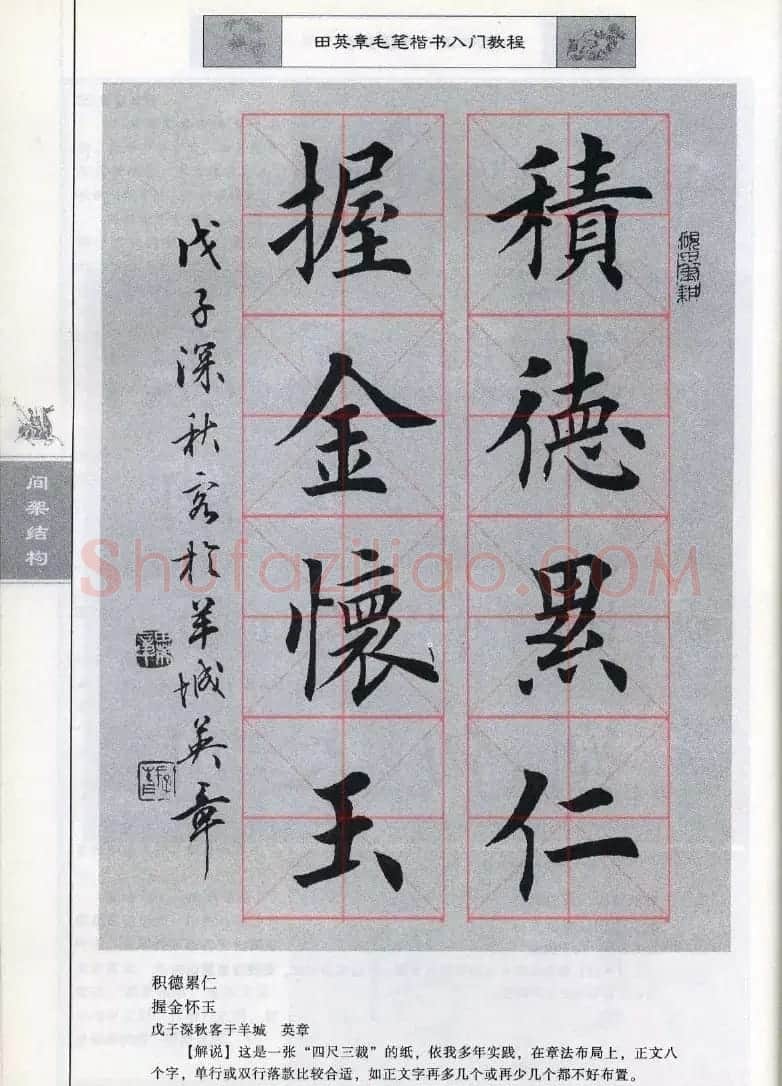 田英章毛笔楷书入门教程
積德累仁
握金懷玉
戊子深秋客於羊城英章
间架结构
Shufaziliao.COM
积德累仁
握金怀玉
戊子深秋客于羊城 英章
【解说】这是一张“四尺三裁”的纸，依我多年实践，在章法布局上，正文八
个字，单行或双行落款比较合适，如正文字再多几个或再少几个都不好布置。